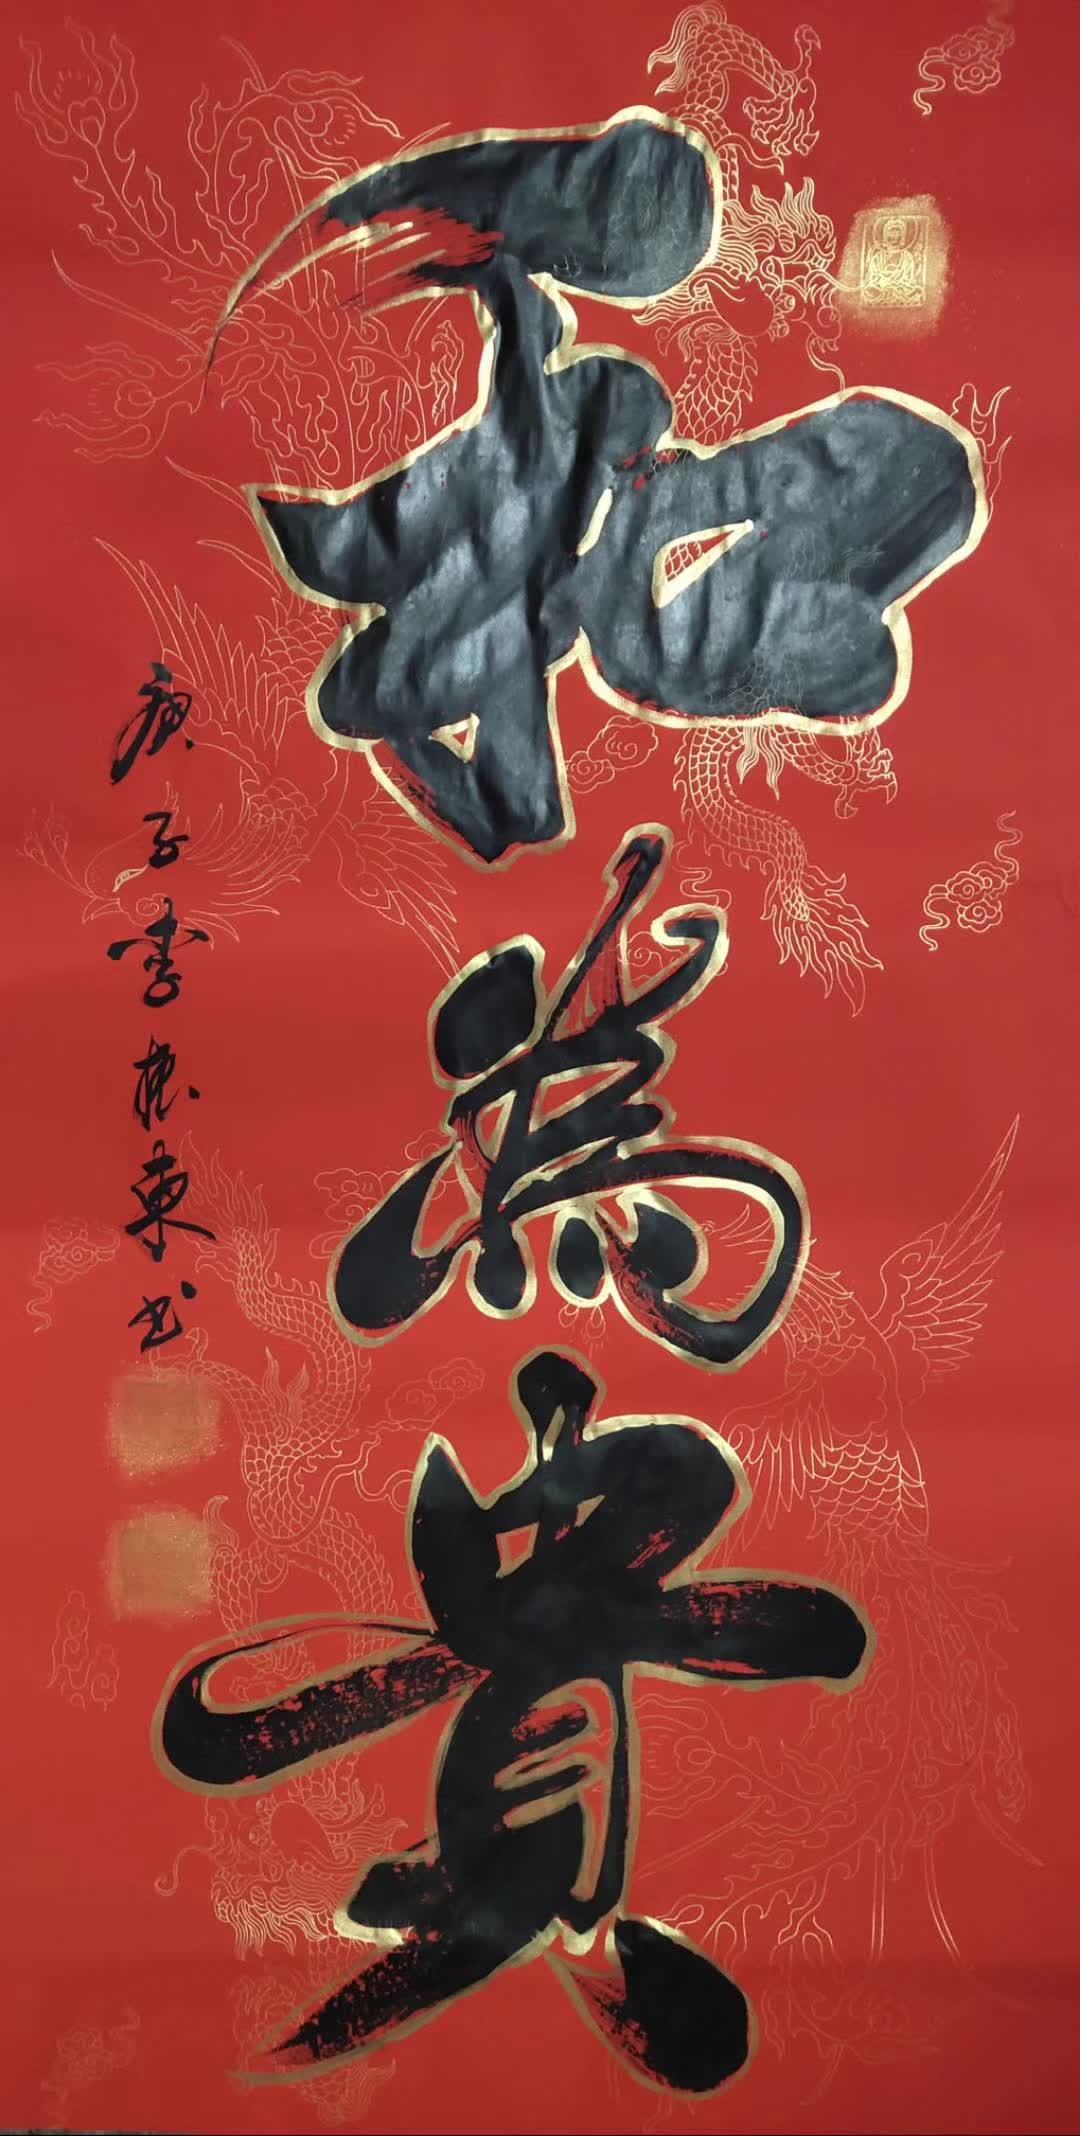 和為貴
庚子李振東书